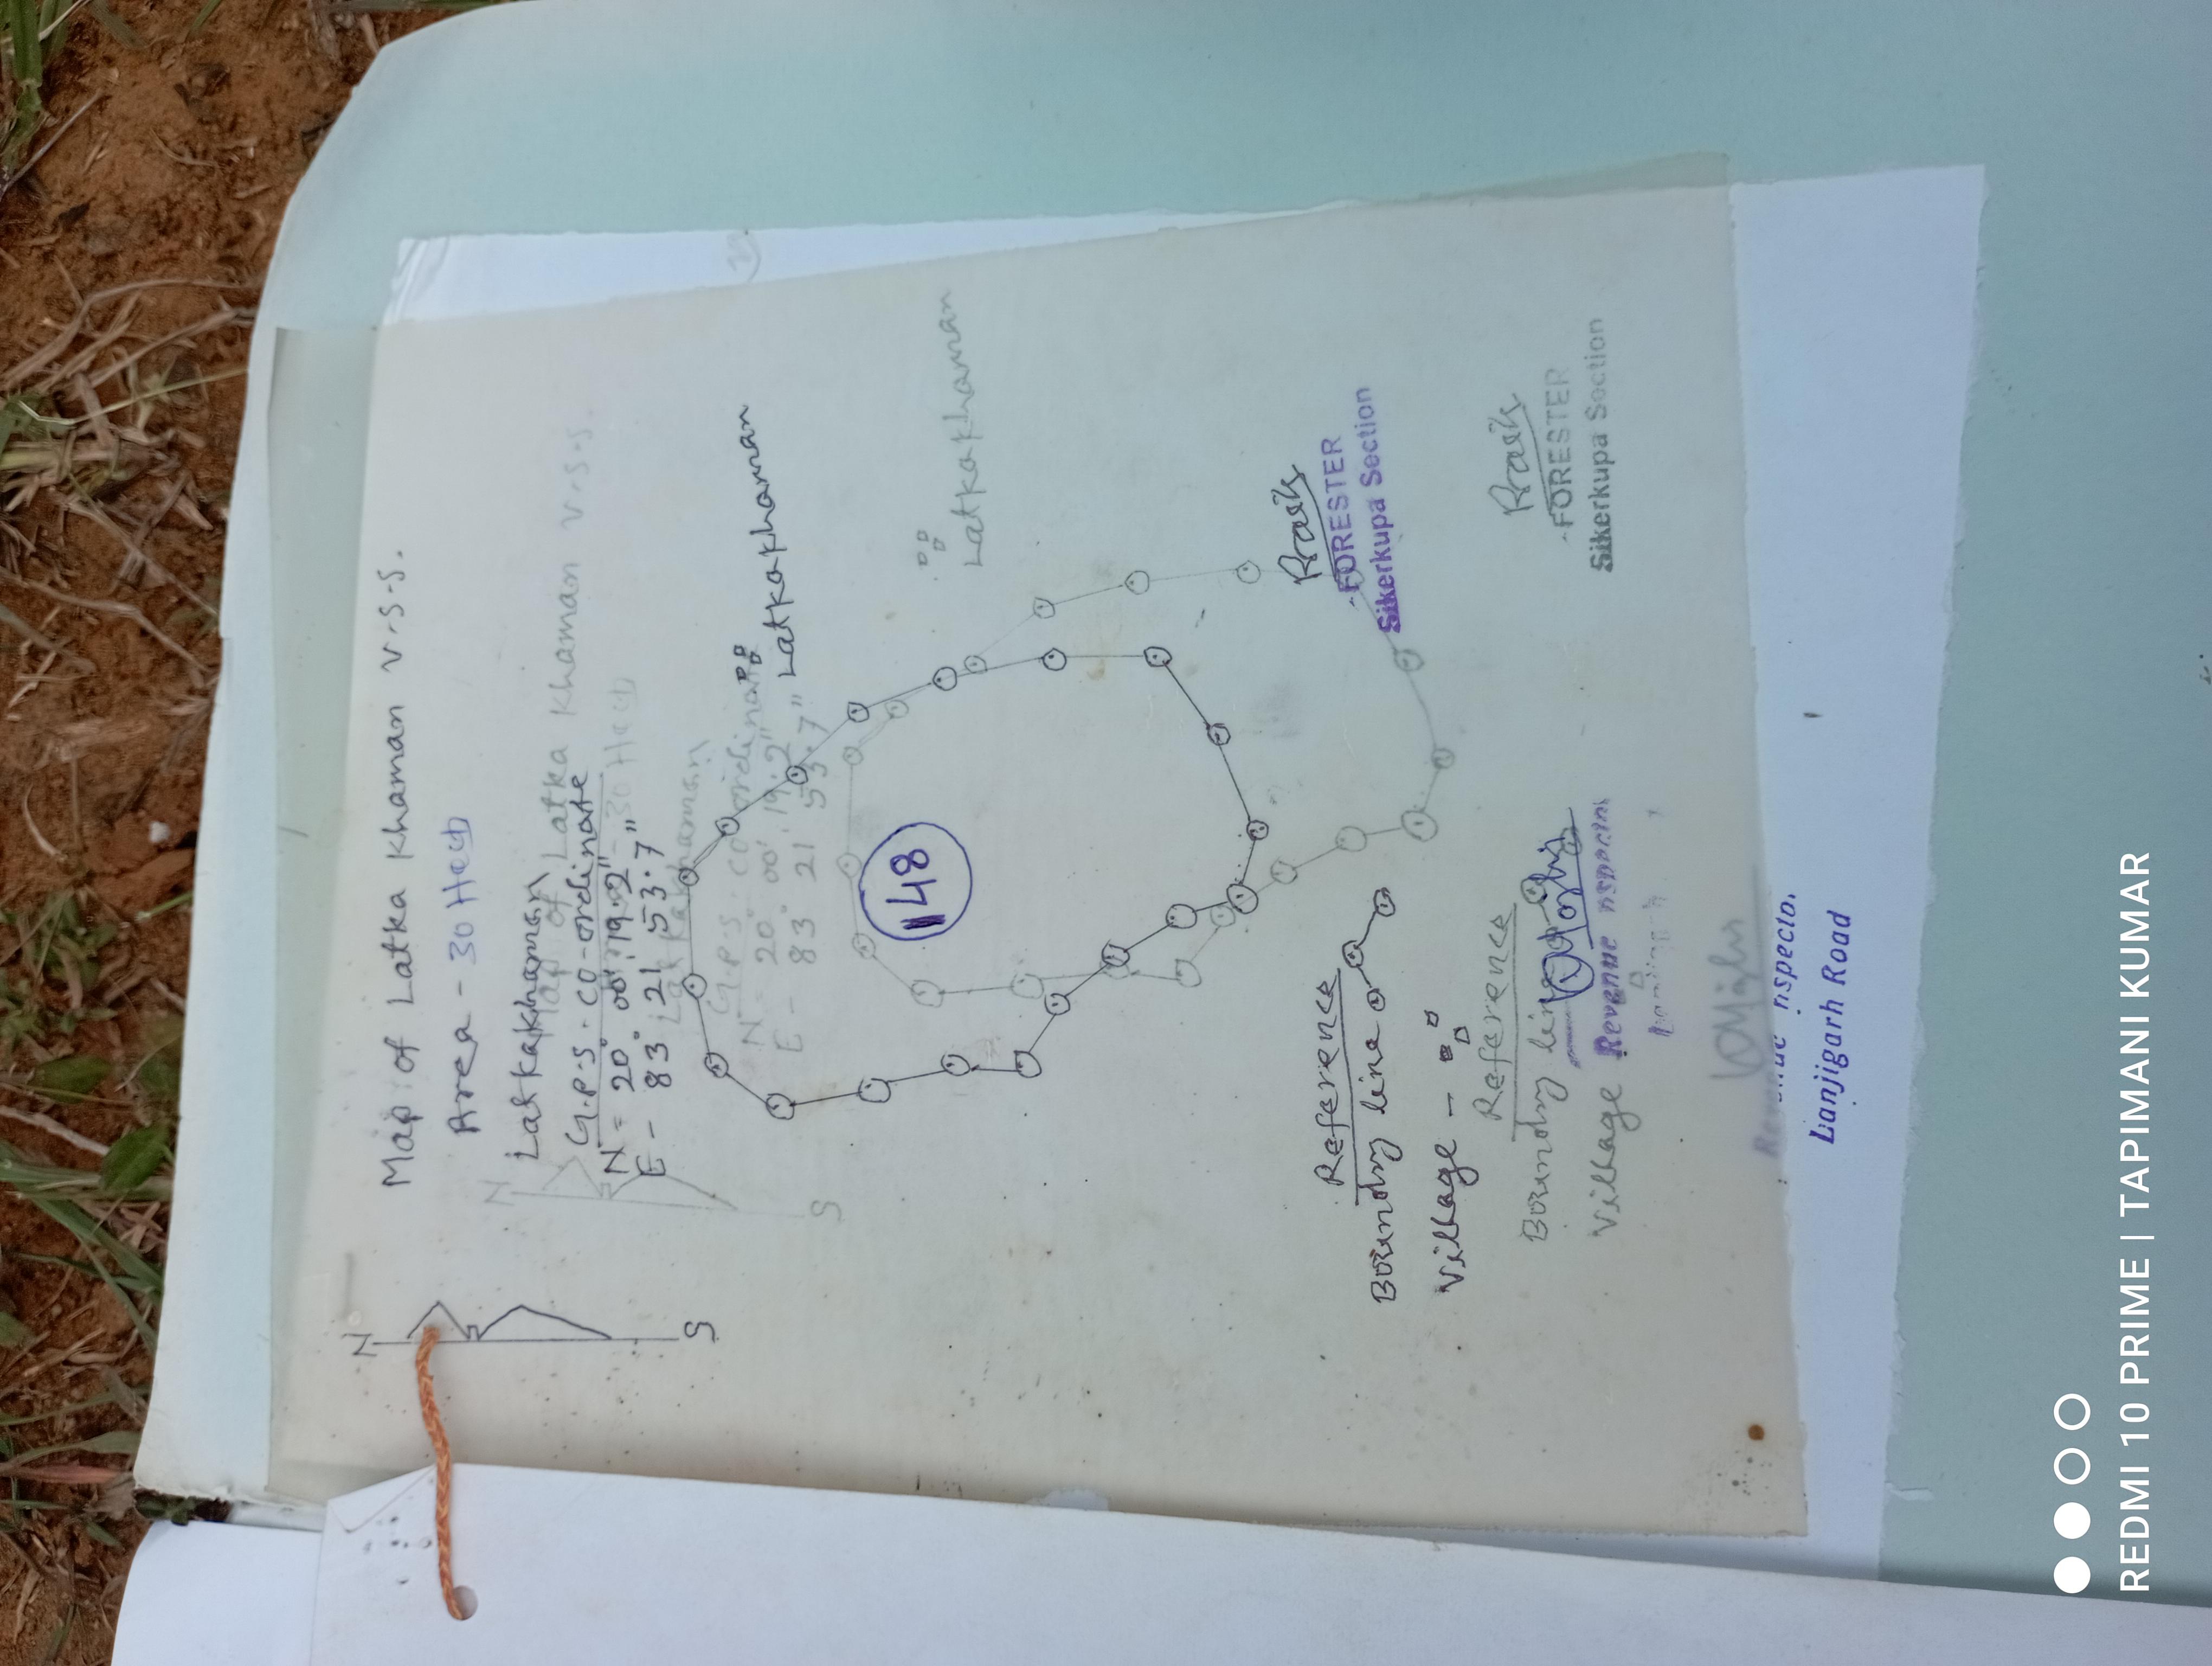 N
S
Map of Latka Khaman V.S.S.
Area - 30 Hect
Latkakhaman
G.P.S. Co-ordinate
N = 20° 00' 19.2"
E - 83° 21 53.7"
Latkakhaman
148
Reference
Boundry line
Village -
FORESTER
Sikerkupa Section
N
S
Map of Latka Khaman V.S.S.
30 Hect
Latkakhaman
G.P.S. Co-ordinate
N = 20° 00' 19.2"
E - 83° 21 53.7"
Latkakhaman
Reference
Boundry line
Village
FORESTER
Sikerkupa Section
Revenue
Lanjigarh Road
REDMI 10 PRIME | TAPIMANI KUMAR